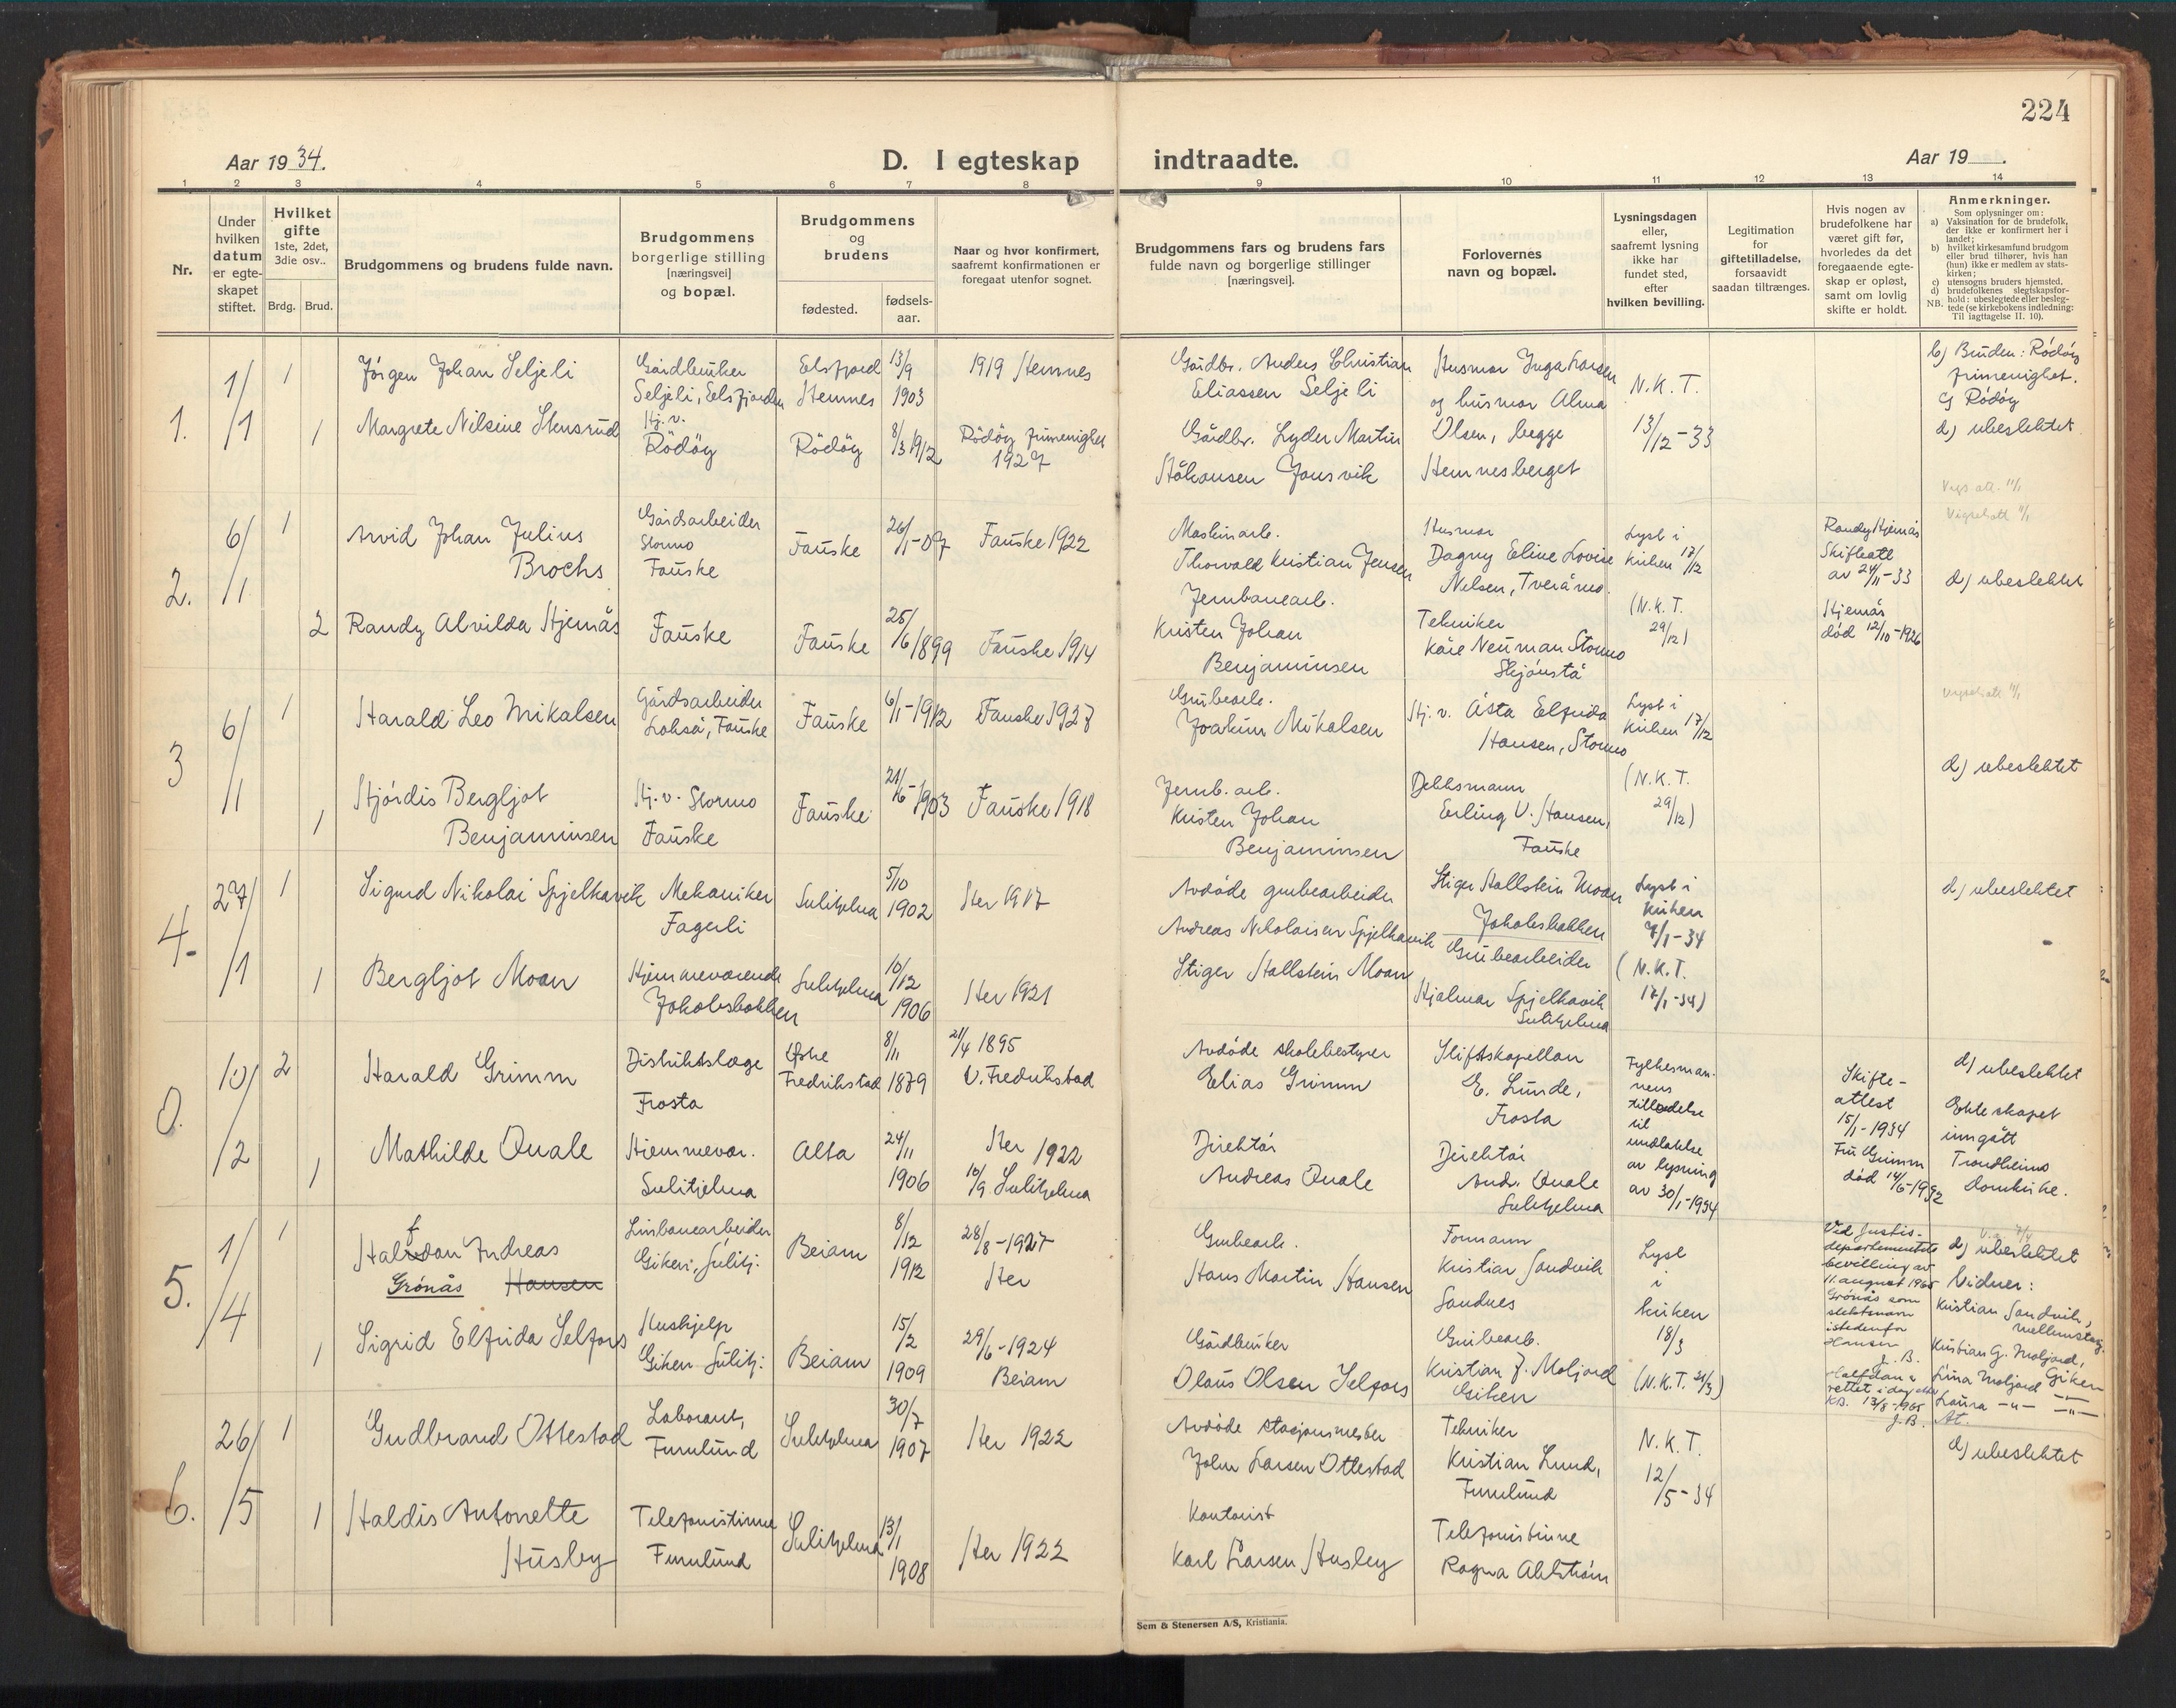 224
Aar 19 34.
D. I egteskap
indtraadte.
Aar 19 .
1 2 3 4 5 6 7 8 9 10 11 12 13 14
Nr.
Under
hvilken
datum
er egte-
skapet
stiftet.
Hvilket
gifte
1ste, 2det,
3die osv..
Brdg. Brud.
Brudgommens og brudens fulde navn.
Brudgommens
borgerlige stilling
[næringsvei]
og bopæl.
Brudgommens
og
brudens
fødested.
fødsels-
aar.
Naar og hvor konfirmert,
saafremt konfirmationen er
foregaat utenfor sognet.
Brudgommens fars og brudens fars
fulde navn og borgerlige stillinger
[næringsvei].
Forlovernes
navn og bopæl.
Lysningsdagen
eller,
saafremt lysning
ikke har
fundet sted,
efter
hvilken bevilling.
Legitimation
for
giftetilladelse,
forsaavidt
saadan tiltrænges.
Hvis nogen av
brudefolkene har
været gift før,
hvorledes da det
foregaaende egte-
skap er opløst,
samt om lovlig
skifte er holdt.
Anmerkninger.
Som oplysninger om:
a) Vaksination for de brudefolk,
der ikke er konfirmert her i
landet;
b) hvilket kirkesamfund brudgom
eller brud tilhører, hvis han
(hun) ikke er medlem av stats-
kirken;
c) utensogns bruders hjemsted,
d) brudefolkenes slegtskapsfor-
hold: ubeslegtede eller besleg-
tede (se kirkebokens indledning:
NB. Til iagttagelse II. 10).
1. 1/1
1 Jörgen Johan Seljeli
Gårdbruker
Seljeli, Elsfjorden
Elsfjord
Hemnes
13/9
1903
1919 Hemnes
Gårdbr. Anders Christian
Eliassen Seljeli
Husmor Inga Larsen
og husmor Alma
Olsen, begge
Hemnesberget
N.K.T.
13/12-33
b) Bruden: Rödöy
frimenighet.
c) Rödöy
d) ubeslektet
1 Margrete Nilsine Stensrud
Hj.v.
Rödöy
Rödöy
8/3 1912
Rödöy frimenighet
1927
Gårdbr. Lyder Martin
Håkansen Jonsvik
2. 6/1
1 Arvid Johan Julius
Brochs
Gårdsarbeider
Stormo
Fauske
Fauske
26/1-07
Fauske 1922
Maskinarb.
Thorvald Kristian Jensen
Husmor
Dagny Eline Lovise
Nilsen, Tveråmo.
Lyst i
kirken 17/12
(N.K.T.
29/12)
Randy Hjemås
Skifteatt
av 24/11-33
Hjemås
död 12/10-1926
d) ubeslektet
2 Randy Alvilda Hjemås
Fauske
Fauske
25/6 1899
Fauske 1914
Jernbanearb.
Kristen Johan
Benjaminsen
Tekniker
Kåre Neuman Stormo
Skjönstå
3 6/1
1 Harald Leo Mikalsen
Gårdsarbeider
Lohså, Fauske
Fauske
6/1-1912
Fauske 1927
Grubearb.
Joakim Mikalsen
Hj.v. Åsta Elfrida
Hansen, Stormo
Lyst i
kirken 17/12
(N.K.T.
29/12)
d) ubeslektet
1 Hjördis Bergljot
Benjaminsen
Hj.v. Stormo
Fauske
Fauske
21/6-1903
Fauske 1918
Jernb. arb.
Kristen Johan
Benjaminsen
Dekksmann
Erling V. Hansen,
Fauske
4. 27/1
1 Sigurd Nikolai Spjelkavik
Mekaniker
Fagerli
Sulitjelma
5/10
1902
Her 1917
Avdöde grubearbeider
Andreas Nikolaisen Spjelkavik
Stiger Hallstein Moan
Jakobsbakken
Lyst i
kirken
7/1-34
(N.K.T.
17/1-34)
d) ubeslektet
1 Bergljot Moan
Hjemmeværende
Jakobsbakken
Sulitjelma
10/12
1906
Her 1921
Stiger Hallstein Moan
Grubearbeider
Hjalmar Spjelkavik
Sulitjelma
0. 10/2
2 Harald Grimm
Distriktslæge
Frosta
Fredrikstad
8/11
1879
21/4 1895
V. Fredrikstad
Avdöde skolebestyrer
Elias Grimm
Stiftskapellan
E. Lunde,
Frosta
Fylkesman-
nens
tilladelse
til
undlatelse
av lysning
av 30/1-1934
Skifte-
attest
15/1-1934
Fru Grimm
död 14/6-1932
d) ubeslektet
Ekteskapet
inngått
Trondheims
domkirke.
1 Mathilde Quale
Hjemmevær.
Sulitjelma
Alta
24/11
1906
Her 1922
10/9 Sulitjelma
Direktör
Andreas Quale
Direktör
And. Quale
Sulitjelma
5. 1/4
1 Halfdan Andreas
Grönås Hansen
Linbanearbeider
Giken, Sulitj.
Beiarn
8/12
1912
28/8-1927
Her
Grubearb.
Hans Martin Hansen
Formann
Kristian Sandvik
Sandnes
Lyst
i
kirken
18/3
(N.K.T. 21/3)
Ved Justis-
departementets
bevilling av
11. august 1965
Grönås som
slektsnavn
istedenfor
Hansen
J.B.
Halfdan
rettet i dag
KB. 13/8-1965
J.B.
d) ubeslektet
Vidner:
Kristian Sandvik,
Kristian G. Moljord,
Giken
Lina Moljord —"—
Laura —"— —"—
1 Sigrid Elfrida Selfors
Hushjelp
Giken Sulitj:
Beiarn
15/2
1909
29/6-1924
Beiarn
Gårdbruker
Olaus Olsen Selfors
Grubearb.
Kristian J. Moljord
Giken
6. 26/5
1 Gudbrand Ottestad
Laborant,
Furulund
Sulitjelma
30/7
1907
Her 1922
Avdöde stasjonsmester
John Larsen Ottestad
Tekniker
Kristian Lund,
Furulund
N.K.T.
12/5-34
d) ubeslektet
1 Haldis Antonette
Husby
Telefonistinne
Furulund
Sulitjelma
13/1
1908
Her 1922
Kontorist
Karl Larsen Husby
Telefonistinne
Ragna Ahlström
Sem & Stenersen A/S, Kristiania.